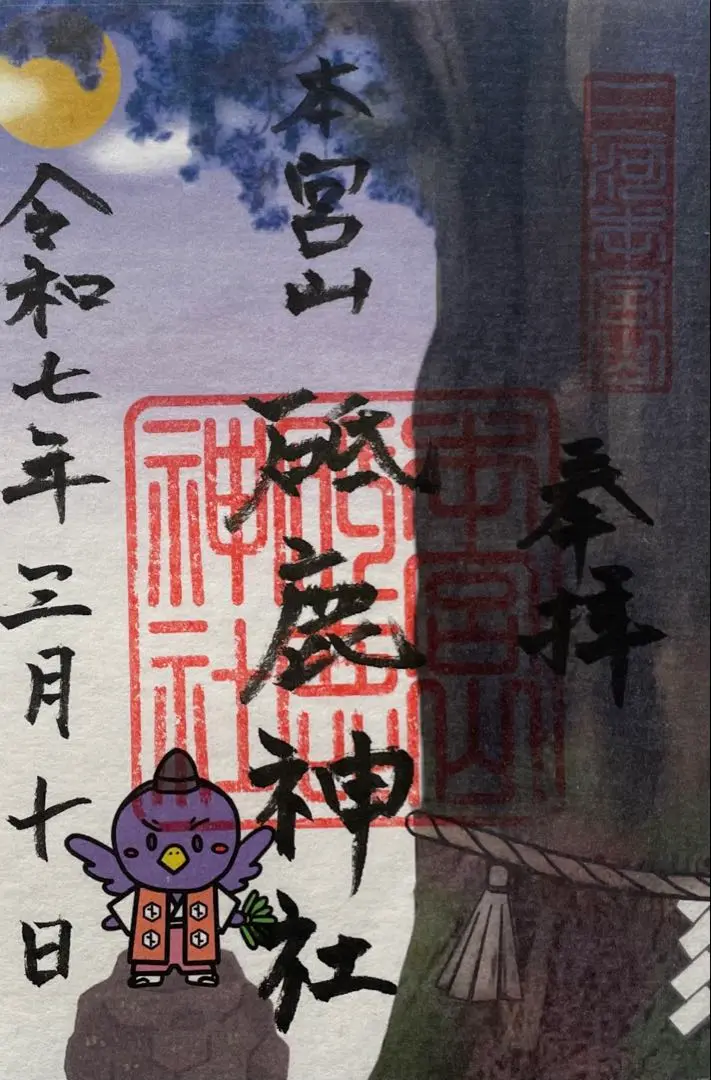 三河本宮山
奉拝
本宮山
砥鹿神社
本宮山
神社
令和七年三月十日